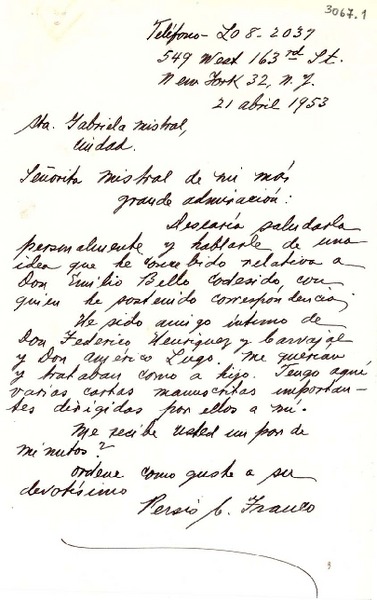 3067.1
Teléfono - LO 8-2037
549 West 163rd St.
New York 32, N.Y.
21 abril 1953
Sta. Gabriela Mistral,
Ciudad.
Señorita Mistral de mi más
grande admiración:
Desearía saludarla
personalmente y hablarle de una
idea que he concebido relativa a
Don Emilio Bello Codesido, con
quien he sostenido correspondencia;
He sido amigo íntimo de
Don Federico Henriquez y Carvajal
y Don Américo Lugo. Me querían
y trataban como a hijo. Tengo aquí
varias cartas manuscritas importan-
tes dirigidas por ellos a mí.
Me recibe usted un par de
minutos?
Ordene como guste a su
devotísimo
Persio C. Franco